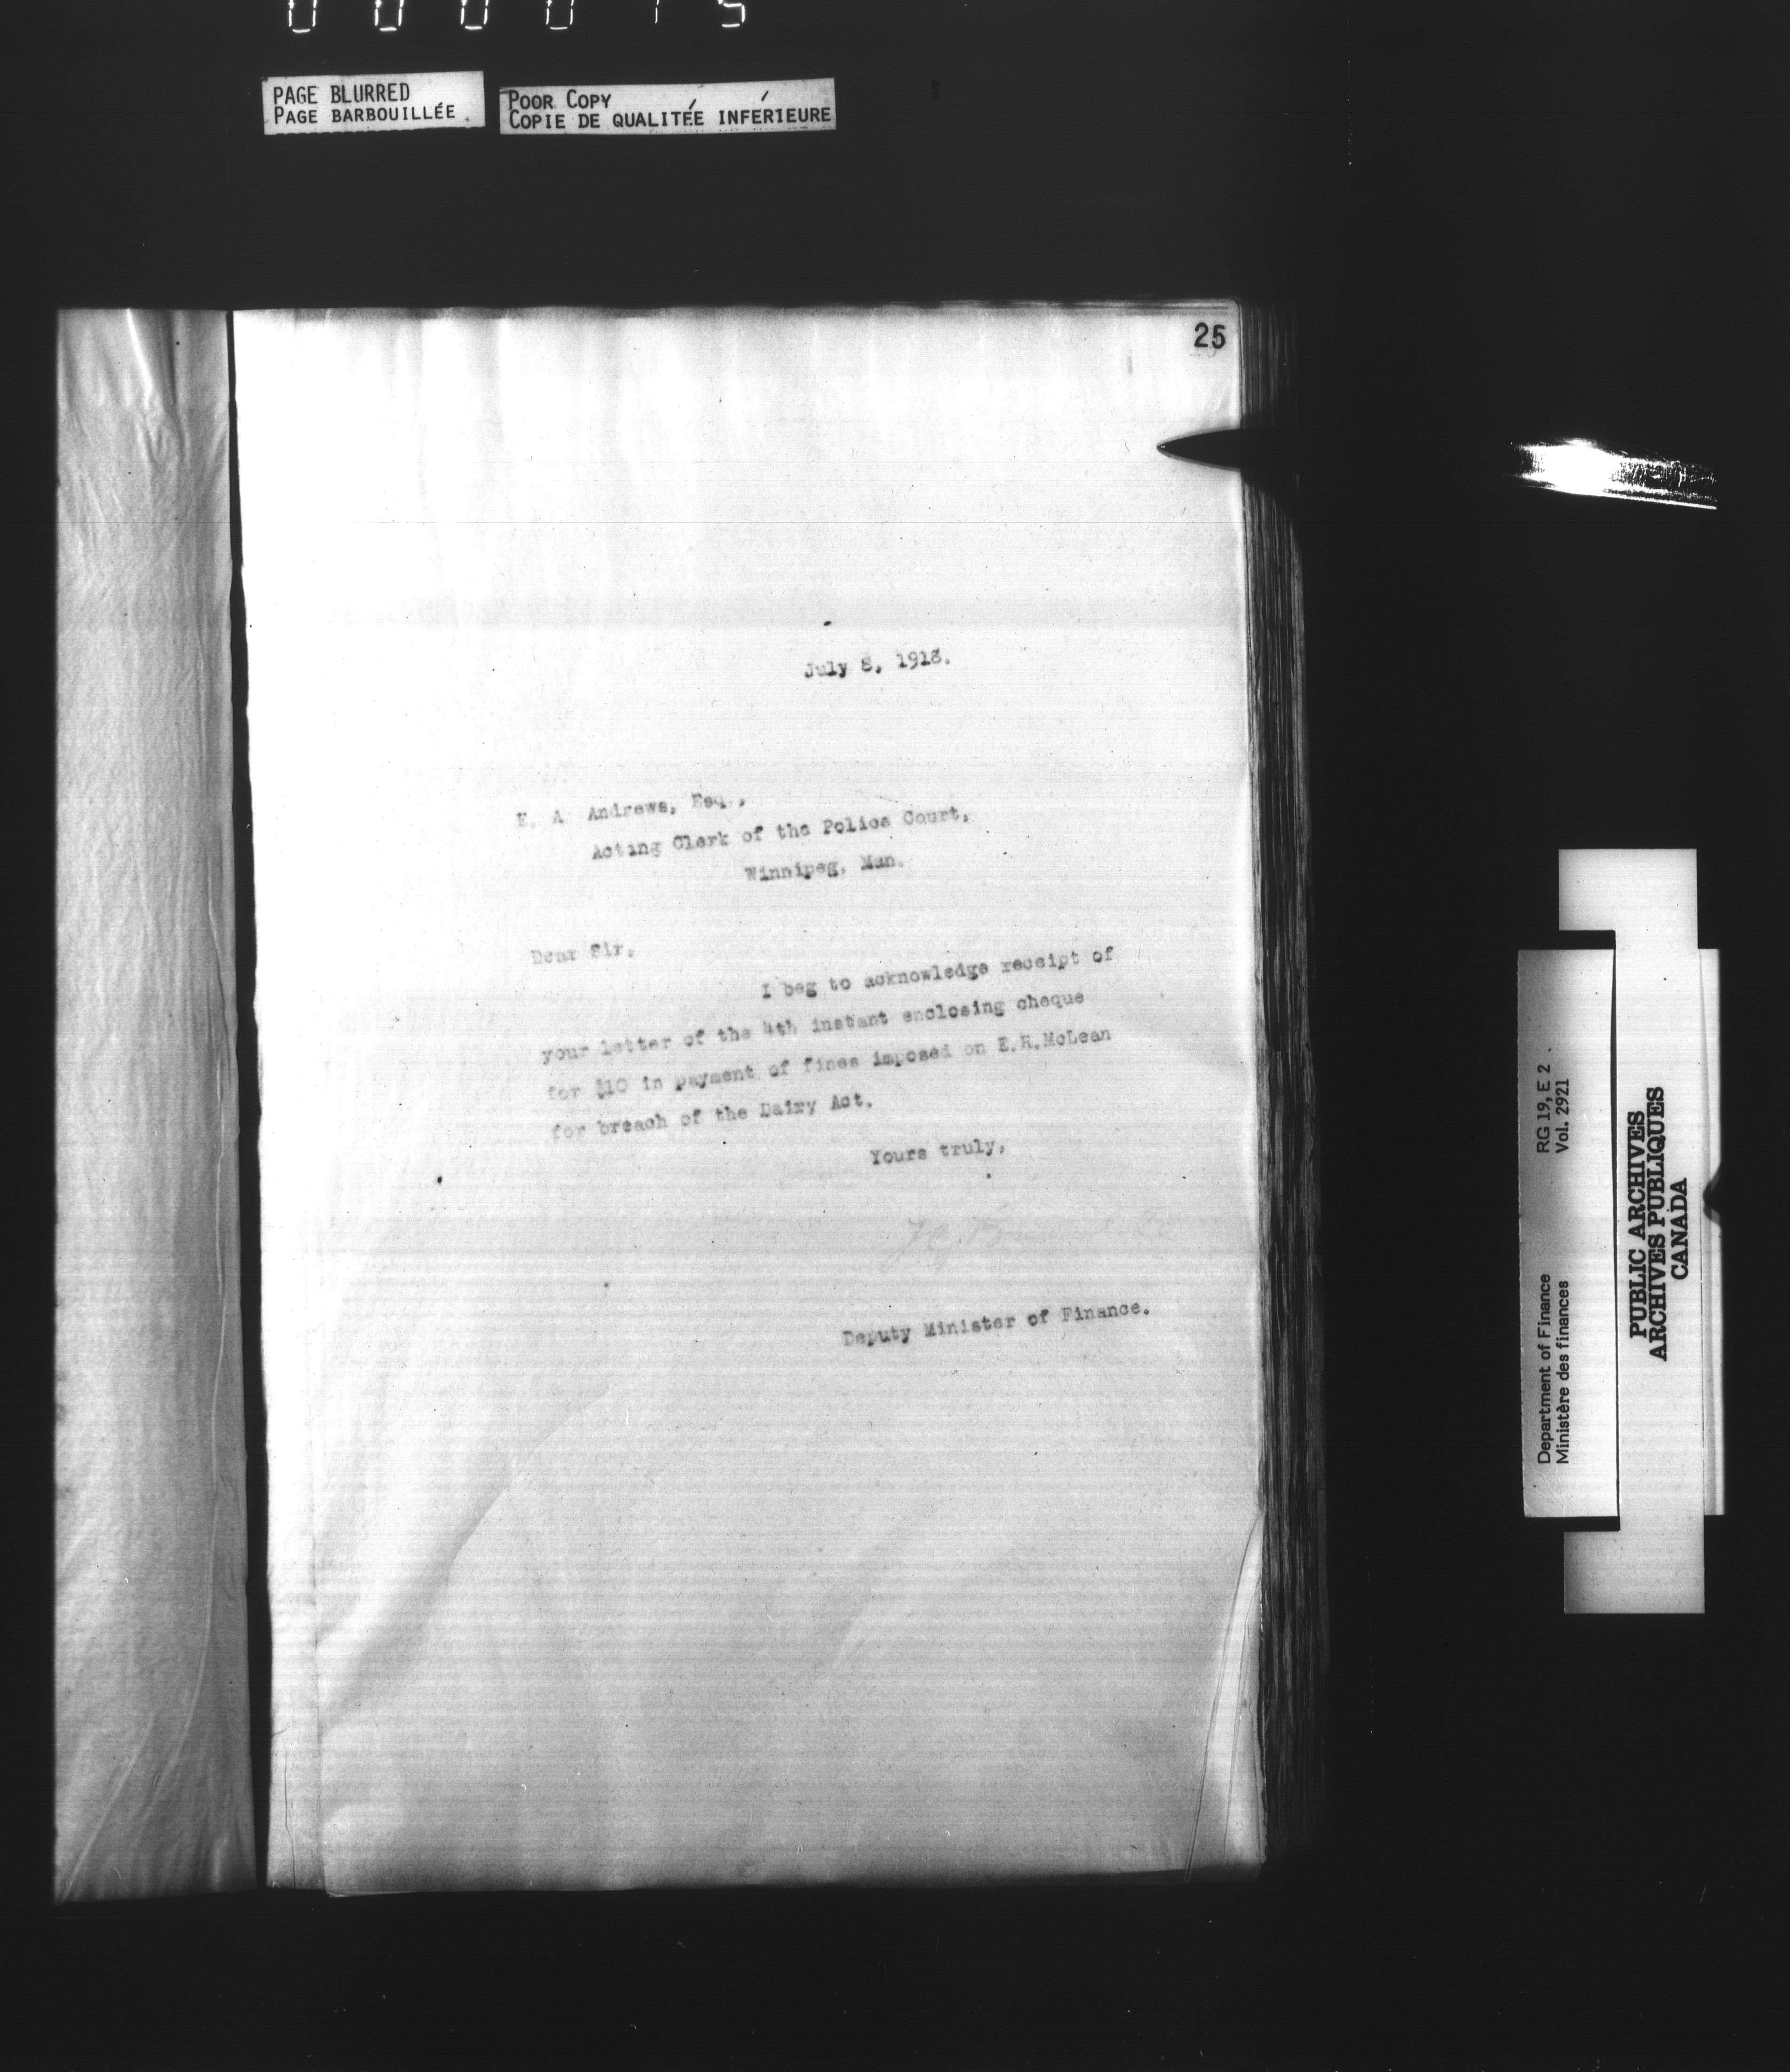 PAGE BLURRED
PAGE BARBOUILLÉE
POOR COPY
COPIE DE QUALITÉE INFÉRIEURE
25
July 8, 1918.
E. A. Andrews, Esq.,
Acting Clerk of the Police Court,
Winnipeg, Man.
Dear Sir,
I beg to acknowledge receipt of
your letter of the 4th instant enclosing cheque
for $10 in payment of fines imposed on E.R.McLean
for breach of the Dairy Act.
Yours truly,
Deputy Minister of Finance.
Department of Finance RG 19, E 2
Ministère des finances Vol. 2921
PUBLIC ARCHIVES
ARCHIVES PUBLIQUES
CANADA